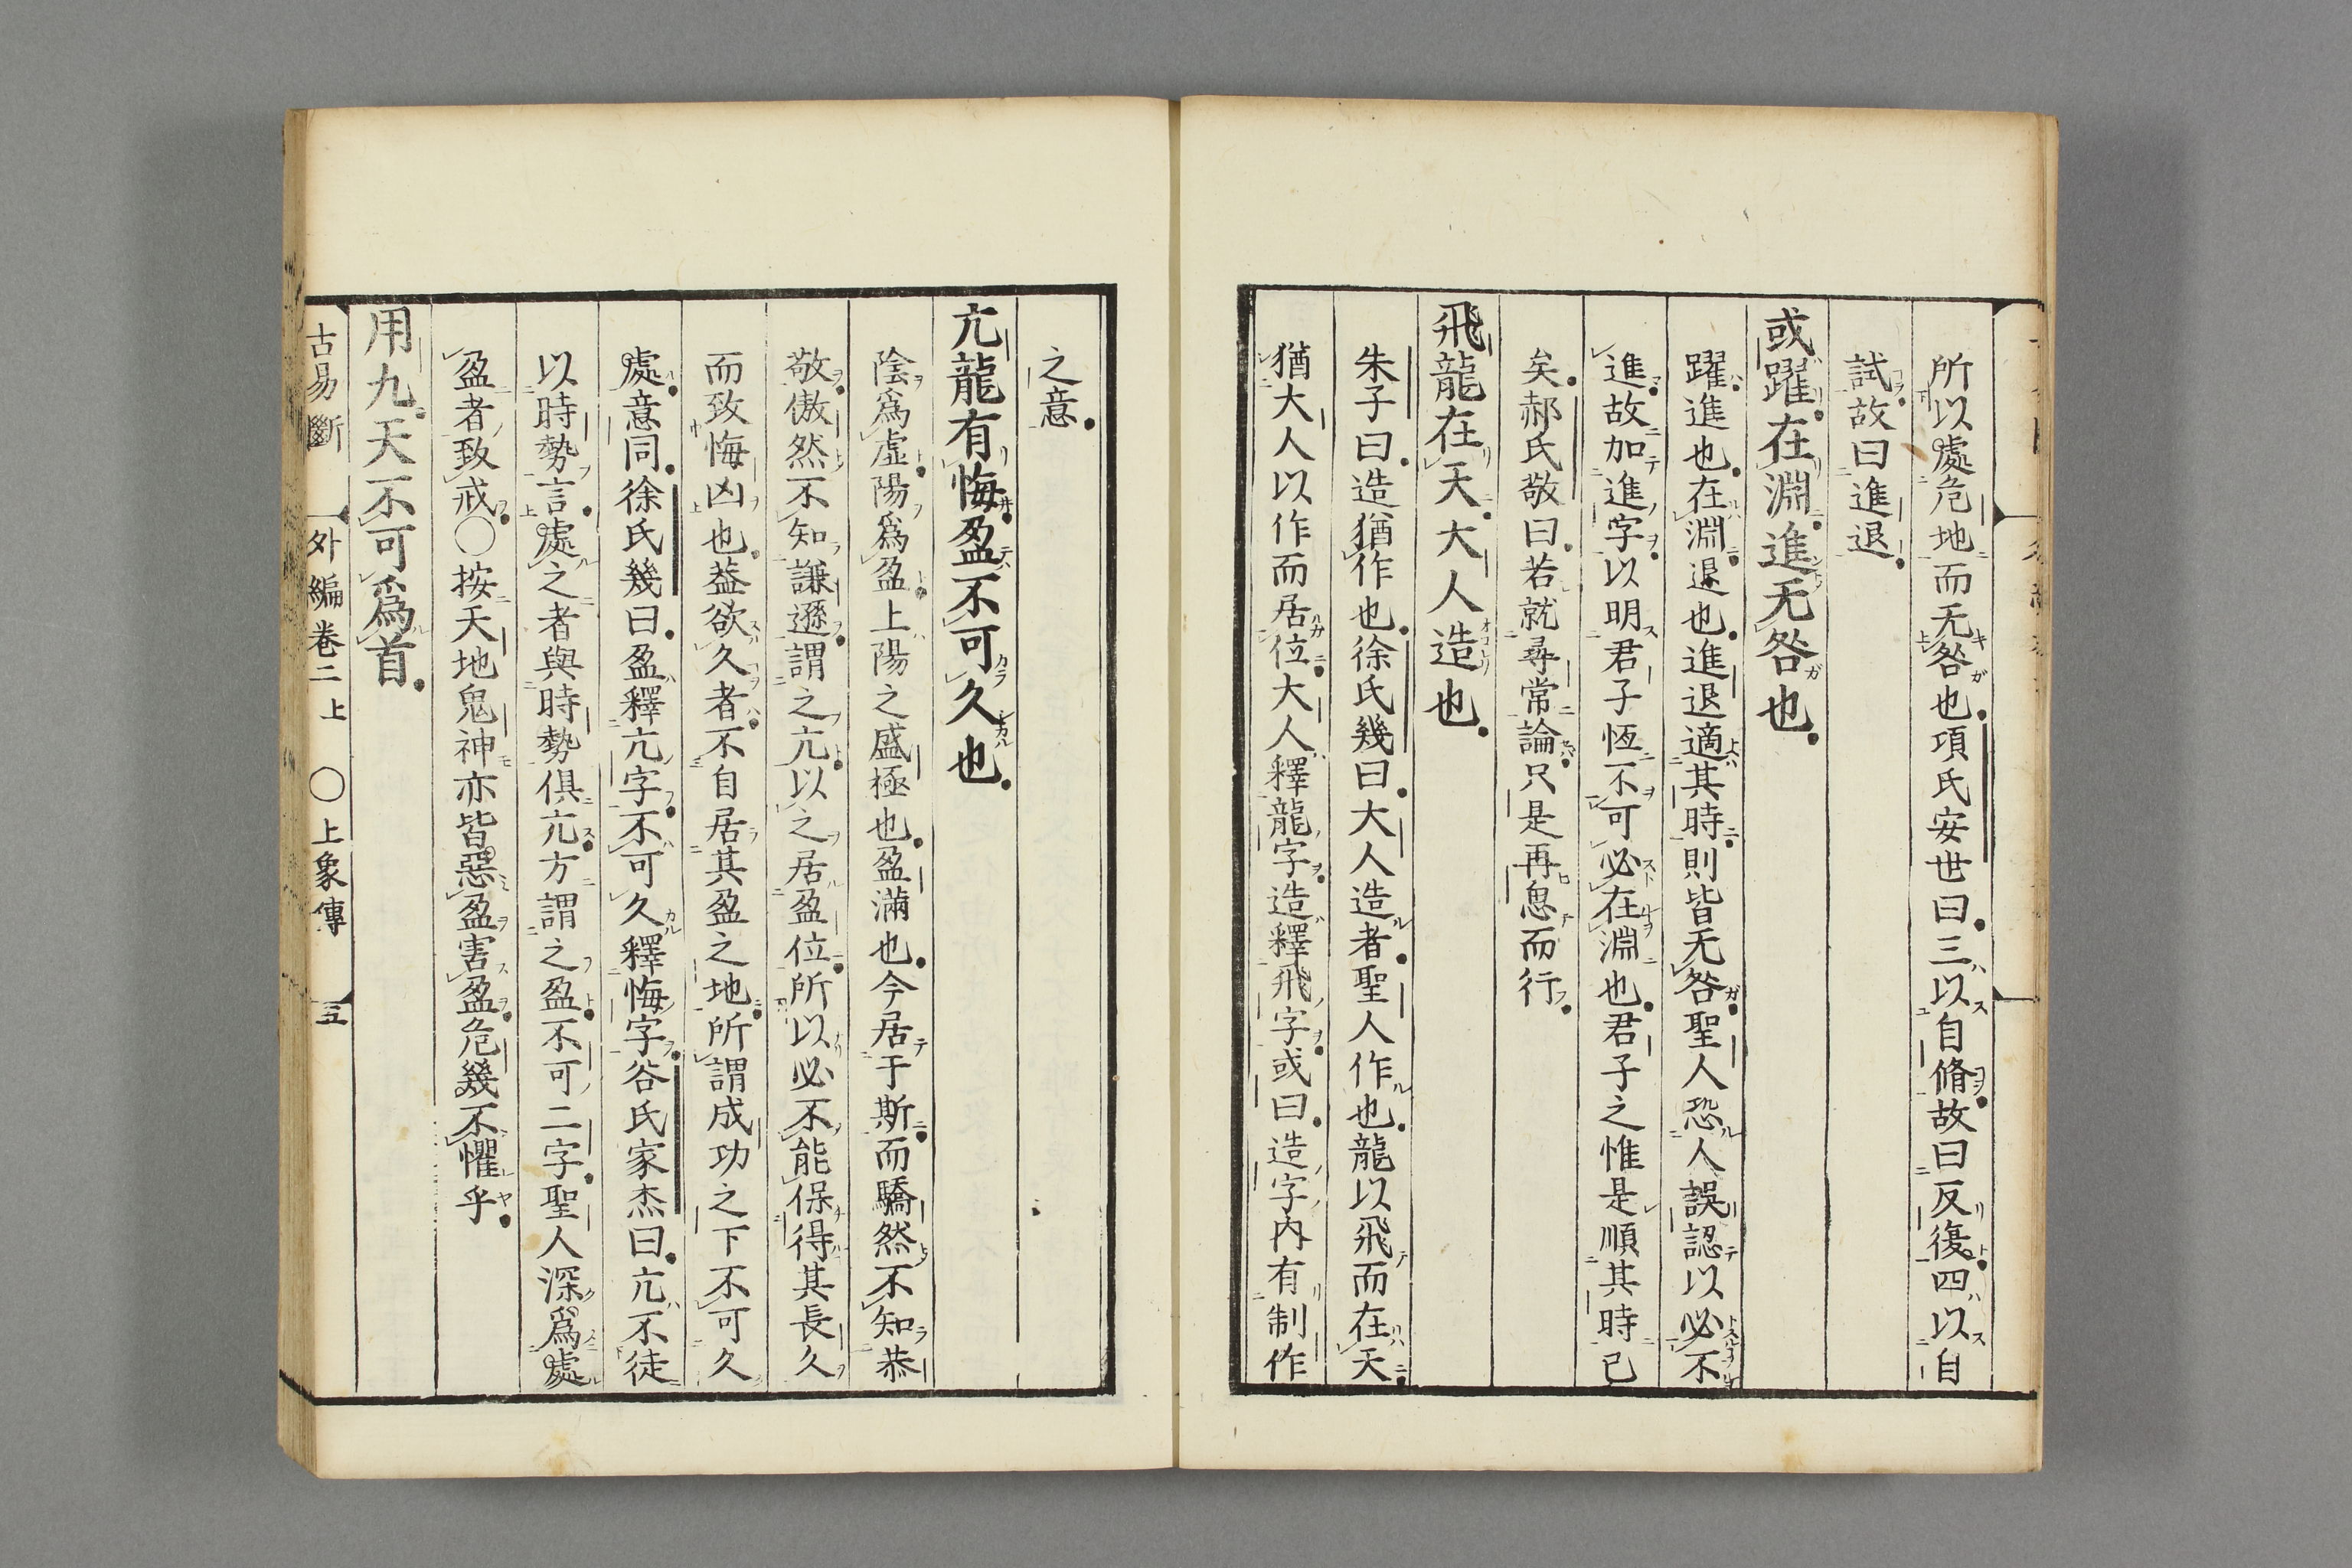 所以處危地而无咎也項氏安世曰三以自脩故曰反復四以自
試故曰進退
或躍在淵進无咎也
躍進也在淵退也進退適其時則皆无咎聖人恐人誤認以必不
進故加進字以明君子恆不可必在淵也君子之惟是順其時已
矣郝氏敬曰若就尋常論只是再息而行
飛龍在天大人造也
朱子曰造猶作也徐氏幾曰大人造者聖人作也龍以飛而在天
猶大人以作而居位大人釋龍字造釋飛字或曰造字內有制作
之意
亢龍有悔盈不可久也
陰爲虛陽爲盈上陽之盛極也盈滿也今居于斯而驕然不知恭
敬傲然不知謙遜謂之亢以之居盈位所以必不能保得其長久
而致悔凶也葢欲久者不自居其盈之地所謂成功之下不可久
處意同徐氏幾曰盈釋亢字不可久釋悔字谷氏家杰曰亢不徒
以時勢言處之者與時勢俱亢方謂之盈不可二字聖人深爲處
盈者致戒○按天地鬼神亦皆惡盈害盈危幾不懼乎
用九天不可爲首
古易斷 外編卷二上 ○上象傳 五